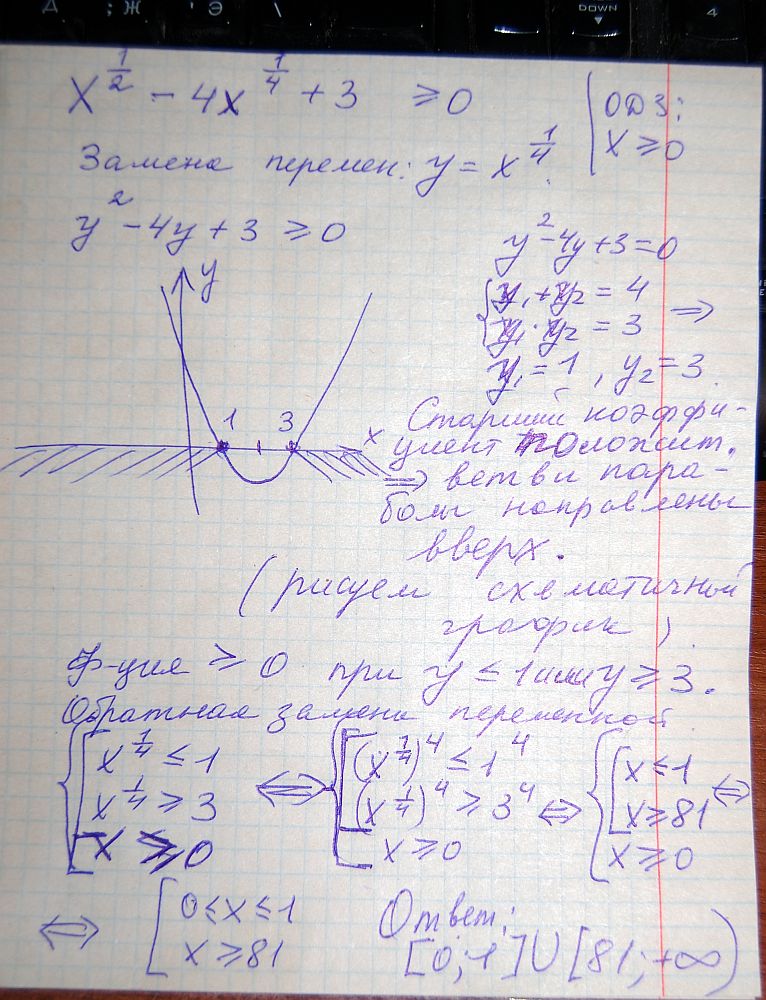 Д ; Ж ' Э \ DOWN 4
x^{1/2} - 4x^{1/4} + 3 ≥ 0
ОДЗ:
x ≥ 0
Замена перемен: y = x^{1/4}.
y^2 - 4y + 3 ≥ 0
y^2 - 4y + 3 = 0
{ y₁ + y₂ = 4
y₁ · y₂ = 3 ⇒
y₁ = 1 , y₂ = 3.
y
1 3
x
Старший коэффи-
циент положит.
⇒ ветви пара-
болы направлены
вверх.
(рисуем схематичной
график).
Ф-ция ≥ 0 при y ≤ 1 или y ≥ 3.
Обратная замена переменной
{ [ x^{1/4} ≤ 1 ⇔ { [ (x^{1/4})^4 ≤ 1^4 ⇔ { [ x ≤ 1 ⇔
x^{1/4} ≥ 3 (x^{1/4})^4 ≥ 3^4 x ≥ 81
x ≥ 0 x ≥ 0 x ≥ 0
⇔ [ 0 ≤ x ≤ 1
x ≥ 81
Ответ:
[0; 1] ∪ [81; +∞)